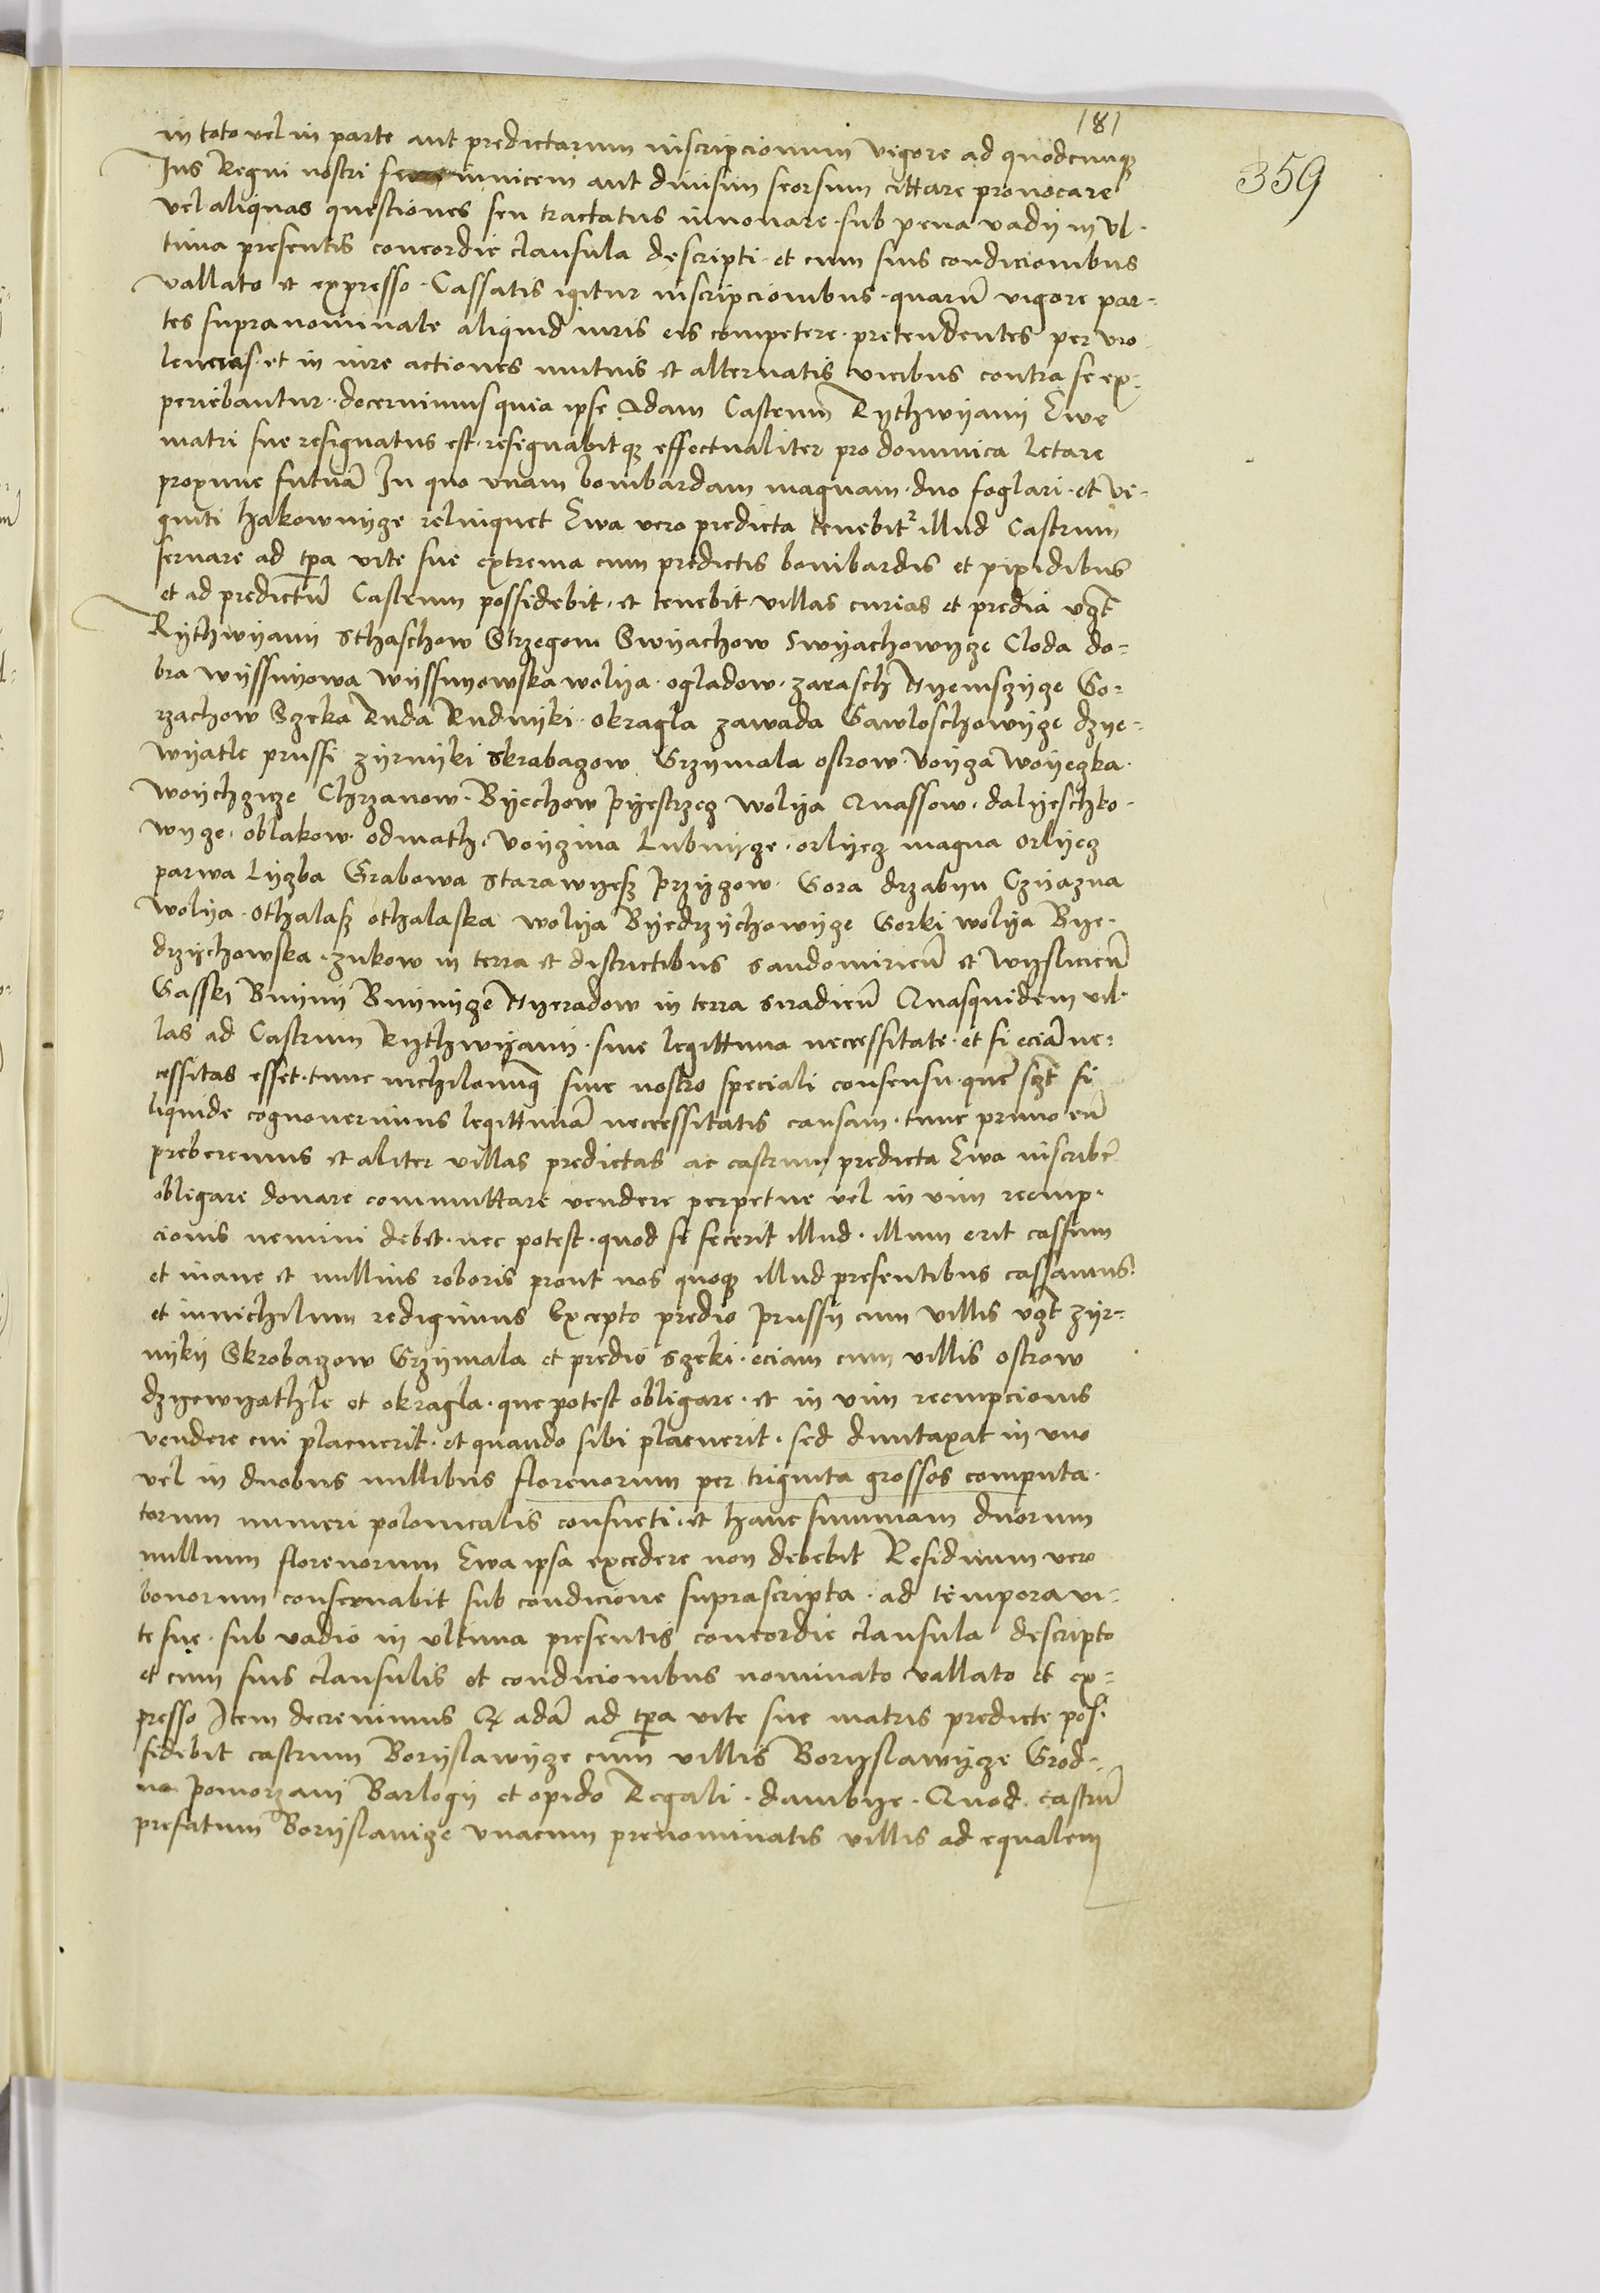 181
359
in toto vel in parte aut predictarum inscripcionum vigore ad quodcunqz
Ius Regni nostri invicem aut divisim seorsum cittare provocare
vel aliquas questiones seu tractatus innovare · sub pena vadii in ul-
tima presentis concordie clausula descripti · et cum suis condicionibus
vallato et expresso · Cassatis igitur inscripcionibus · quarum vigore par-
tes supranominate aliquid iuris eis competere · pretendentes per vio-
lencias · et in iure actiones mutuis et alternatis vicibus contra se ex-
periebantur · decernimus quia ipse Adam Castrum Rythwyany Ewe
matri sue resignatus est · resignabitqz effectualiter pro dominica letare
proxime futura In quo unam bombardam magnam · duo foglari · et ve-
ginti hakownyze relinquet Ewa vero predicta tenebitur illud Castrum
servare ad tpa vite sue extrema cum predictis bombardis et pixidibus
et ad predictum Castrum possidebit · et tenebit villas curias et predia vzt
Rythwyany Sthaschow Strzegom Swyachow Swyachowyze Cloda do-
bra wyssnyowa wyssnyowska wolya · ogladow · zarasch Nyemszyze Go-
rzachow Szeka Ruda Rudnyki · okragla zawada Gawloschowyze dzye-
wyatle prussi zyrnyki Skrabazow Grzymala ostrow · Voyza woyezka ·
woychzicze Chrzanow · Byechow Pyestrzecz wolya Quassow · dalyeschko-
wyze · oblakow · odmath · voyzina Lubnyze · orlyecz magna orlyecz
parwa Lyzba Grabowa Starawyesz Przyzow · Gora drzabyn Czyazna
wolya · Othalasz othalaska wolya Byedrzychowyze Gorki wolya Bye-
drzychowska · zukow in terra et districtibus Sandomiriens et wysliciens
Gasski Bnyny Bnynyze Nyeradow in terra Siradiens Quasquidem vil-
las ad Castrum Rythwyany · sine legittima necessitate · et si eciam ne-
cessitas esset · tunc nichilominus sine nostro speciali consensu · quem sczt si
liquide cognoverimus legittimam necessitatis causam · tunc primo eum
preberemus et aliter villas predictas ac castrum predicta Ewa inscribere
obligare donare commuttare vendere perpetue vel in vim reemp-
cionis nemini debet · nec potest · quod si fecerit illud · illum erit cassum
et inane et nullius roboris prout nos quoqz illud presentibus cassamus ·
et in nichilum redigimus Excepto predio Prussy cum villis vzt zyr-
nyky Skrobazow Grzymala et predio Szeki · eciam cum villis ostrow
dzyewyathle et okragla · que potest obligare · et in vim reempcionis
vendere cui placuerit · et quando sibi placuerit · sed duntaxat in uno
vel in duobus millibus florenorum per triginta grossos computa-
torum numeri polonicalis consueti · et hanc summam duorum
millium florenorum Ewa ipsa excedere non debebit Residuum vero
bonorum conservabit sub condicione suprascripta · ad tempora vi-
te sue · sub vadio in ultima presentis concordie clausula descripto
et cum suis clausulis et condicionibus nominato vallato et ex-
presso Item decrevimus Qz adam ad tpa vite sue matris predicte pos-
sidebit castrum Boryslawyze cum villis Boryslawyze Grod-
na Pomorzani Barlogy et opido Regali · dambye · Quod · castrum
prefatum Boryslavize unacum prenominatis villis ad equalem